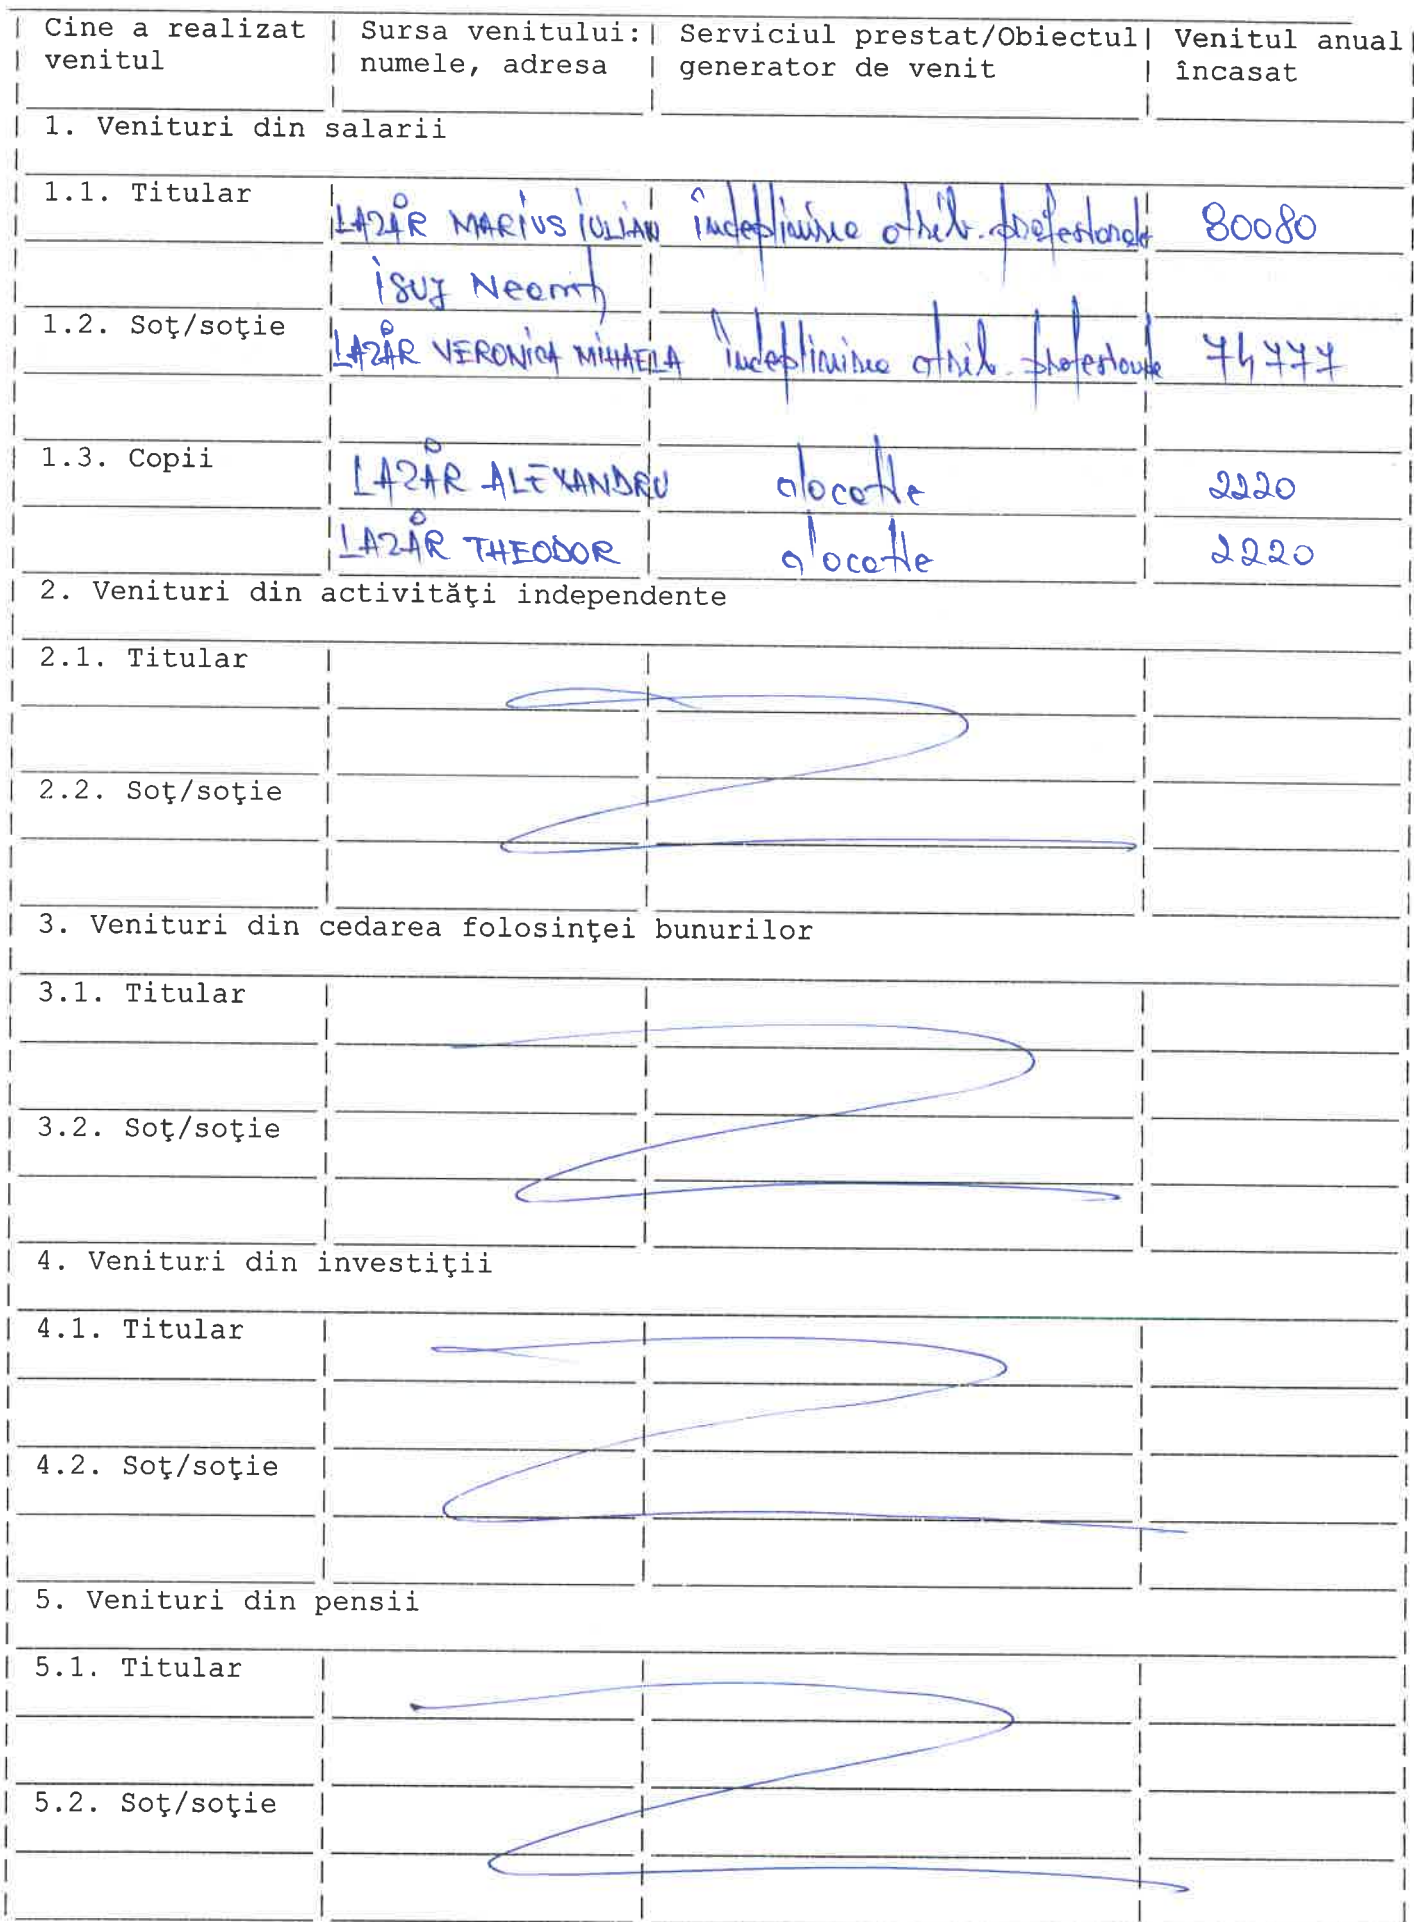 Cine a realizat venitul | Sursa venitului: numele, adresa | Serviciul prestat/Obiectul generator de venit | Venitul anual încasat
1. Venituri din salarii
1.1. Titular | LAZĂR MARIUS IULIAN | îndeplinire atrib. profesionale | 80080
ISUJ Neamț
1.2. Soţ/soţie | LAZĂR VERONICA MIHAELA | îndeplinire atrib. profesionale | 74777
1.3. Copii | LAZĂR ALEXANDRU | alocație | 2220
LAZĂR THEODOR | alocație | 2220
2. Venituri din activităţi independente
2.1. Titular
2.2. Soţ/soţie
3. Venituri din cedarea folosinţei bunurilor
3.1. Titular
3.2. Soţ/soţie
4. Venituri din investiţii
4.1. Titular
4.2. Soţ/soţie
5. Venituri din pensii
5.1. Titular
5.2. Soţ/soţie